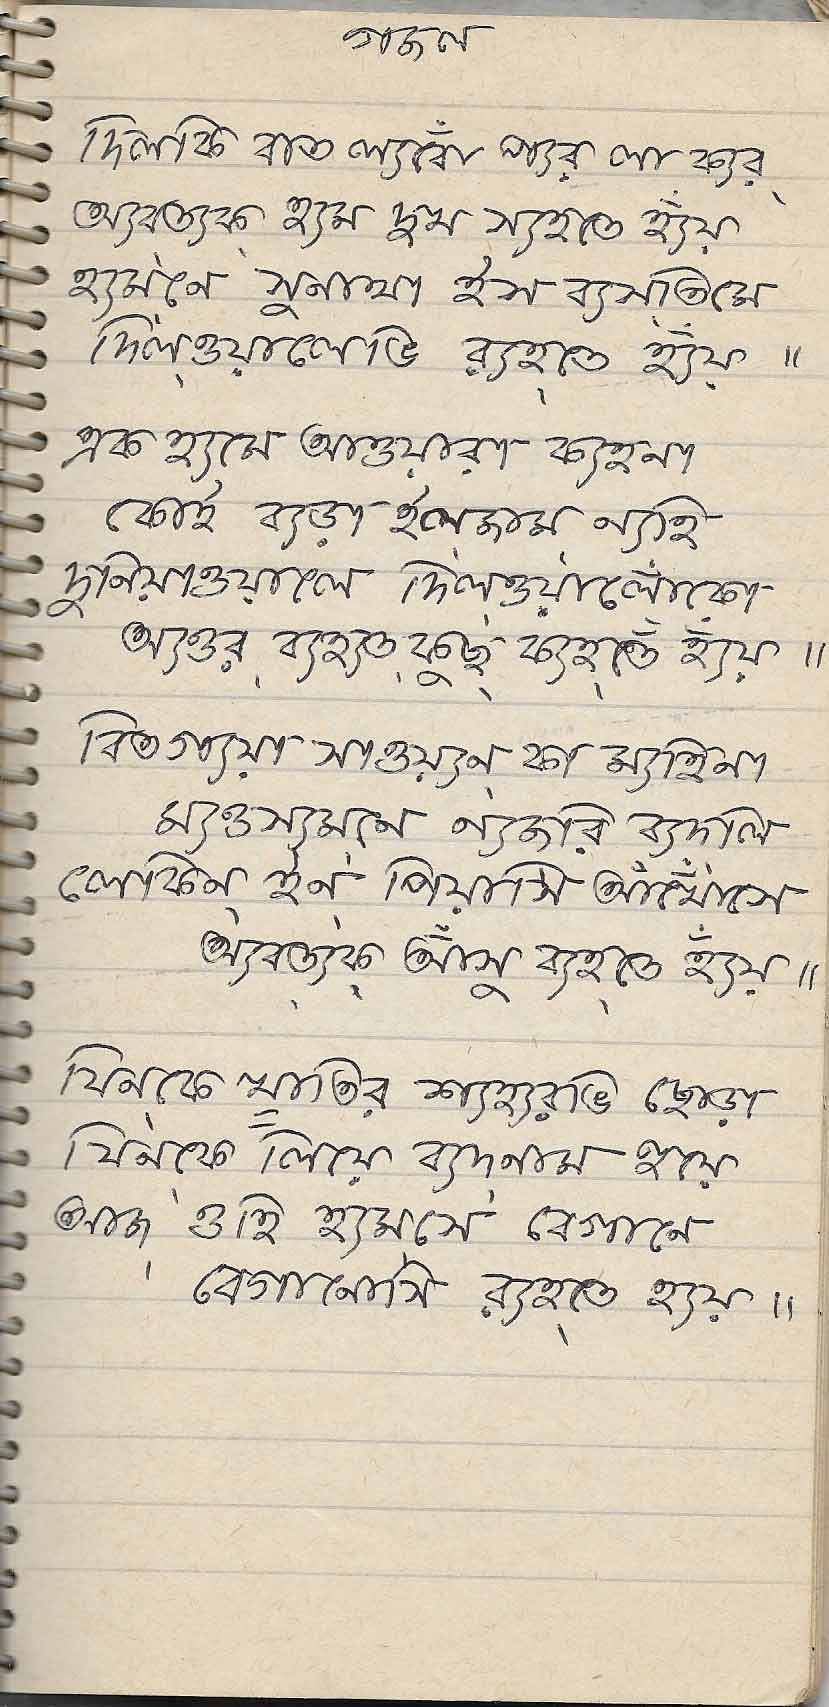 গজল
দিলকি বাত ল্যাবোঁ প্যর লা ক্যর্
অ্যবত্যক্ হ্যম দুখ স্যহতে হ্যঁয়
হ্যম্‌নে সুনাথা ইস ব্যস্‌তিমে
দিল্‌ওয়ালেভি র‍্যহ্‌তে হ্যঁয় ॥
এক হ্যমে আওয়ারা ক্যহনা
কোই ব্যড়া ইল্‌জাম্ ন্যহি
দুনিয়াওয়ালে দিল্‌ওয়ালোঁকো
অ্যওর্ ব্যহ্যত্ কুছ্ ক্যহ্‌তেঁ হ্যঁয় ॥
বিত গ্যয়া সাওয়্যন্ কা ম্যহিনা
ম্যওস্যম্‌নে ন্যজরি ব্যদলি
লেকিন্ ইন্ পিয়াসি আঁখোঁসে
অ্যবত্যক্ আঁসু ব্যহ্‌তে হ্যঁয় ॥
যিন্‌কে খাতির শ্যহ্যরভি ছোড়া
যিন্‌কে লিয়ে ব্যদ্‌নাম হুয়ে
আজ্ ওহি হ্যম্‌সে বেগানে
বেগানেসি র‍্যহ্‌তে হ্যয় ॥